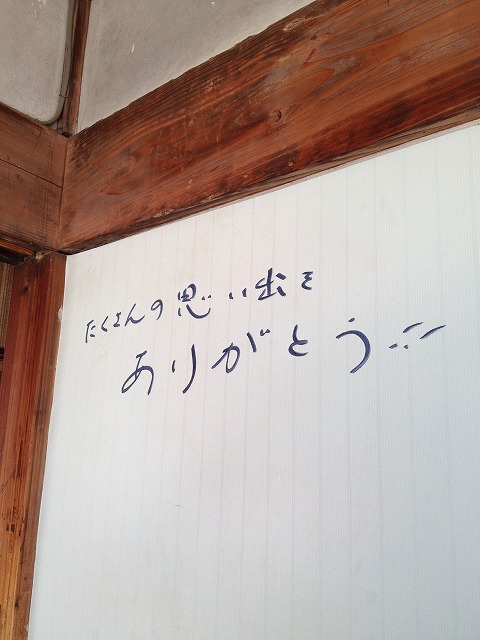 たくさんの思い出を
ありがとう!!